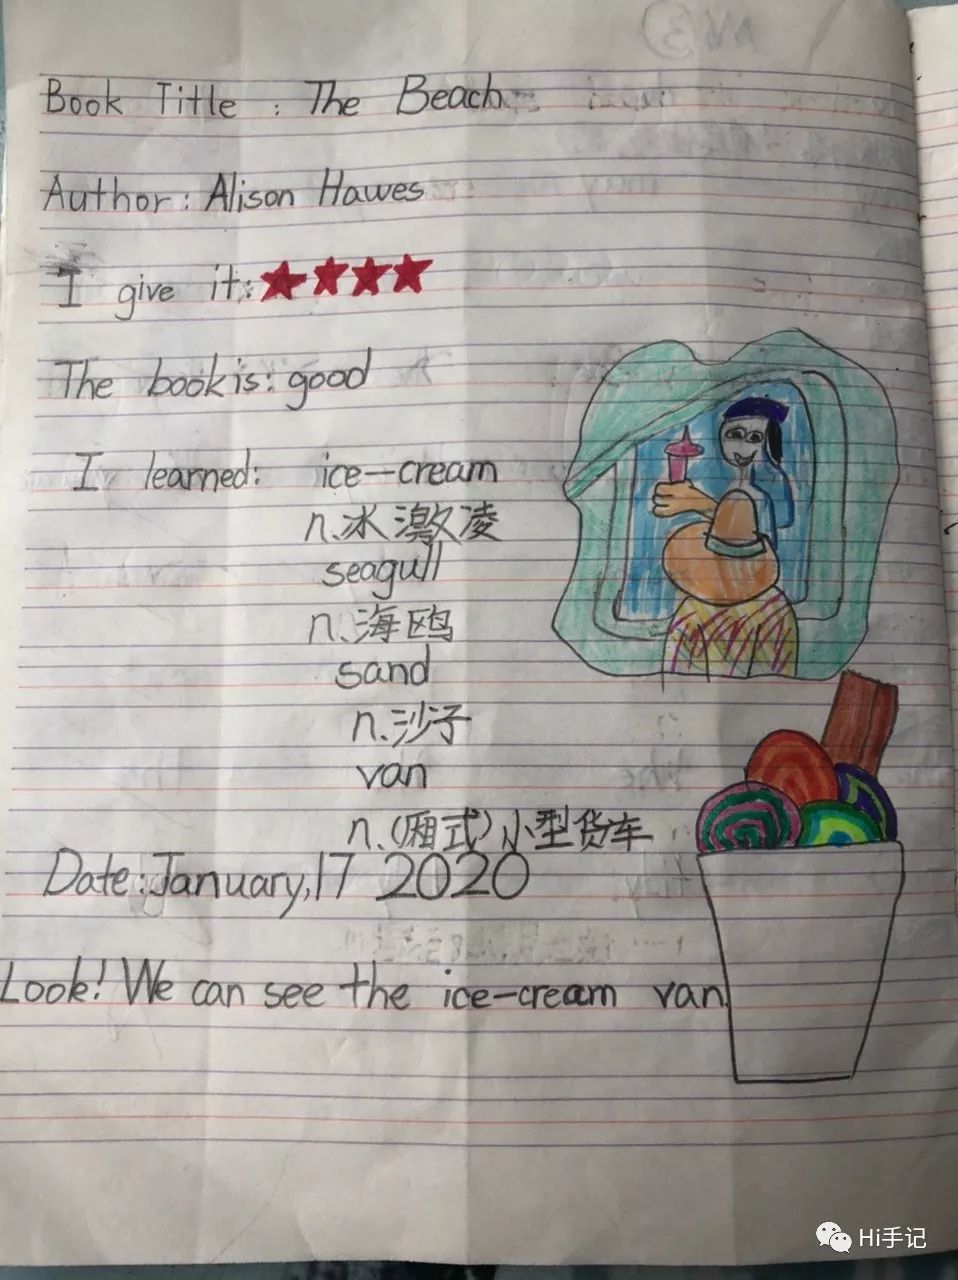 Book Title : The Beach
Author: Alison Hawes
I give it: ★★★★
The book is: good
I learned: ice-cream
n.冰激凌
seagull
n.海鸥
sand
n.沙子
van
n.(厢式)小型货车
Date:January,17 2020
Look! We can see the ice-cream van
Hi手记